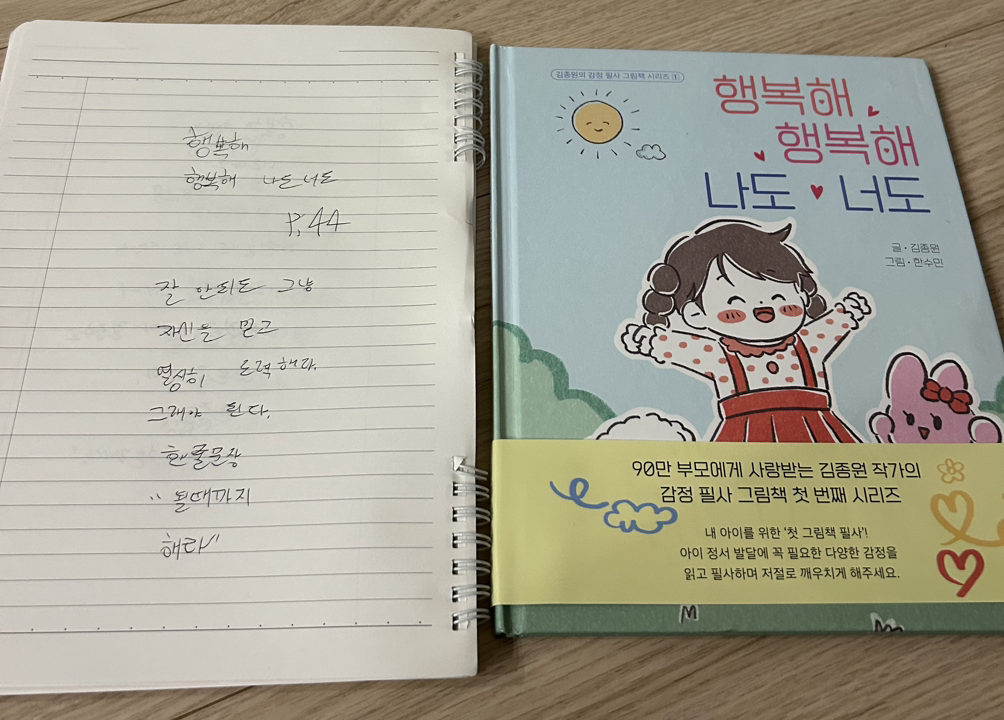 행복해
행복해 나도 너도
P. 44
잘 안되도 그냥
자신을 믿고
열심히 노력해라.
그래야 된다.
한줄문장
"될때까지
해라"
김종원의 감정 필사 그림책 시리즈 1
행복해
행복해
나도 너도
글·김종원
그림·한수민
90만 부모에게 사랑받는 김종원 작가의
감정 필사 그림책 첫 번째 시리즈
내 아이를 위한 '첫 그림책 필사'!
아이 정서 발달에 꼭 필요한 다양한 감정을
읽고 필사하며 저절로 깨우치게 해주세요.